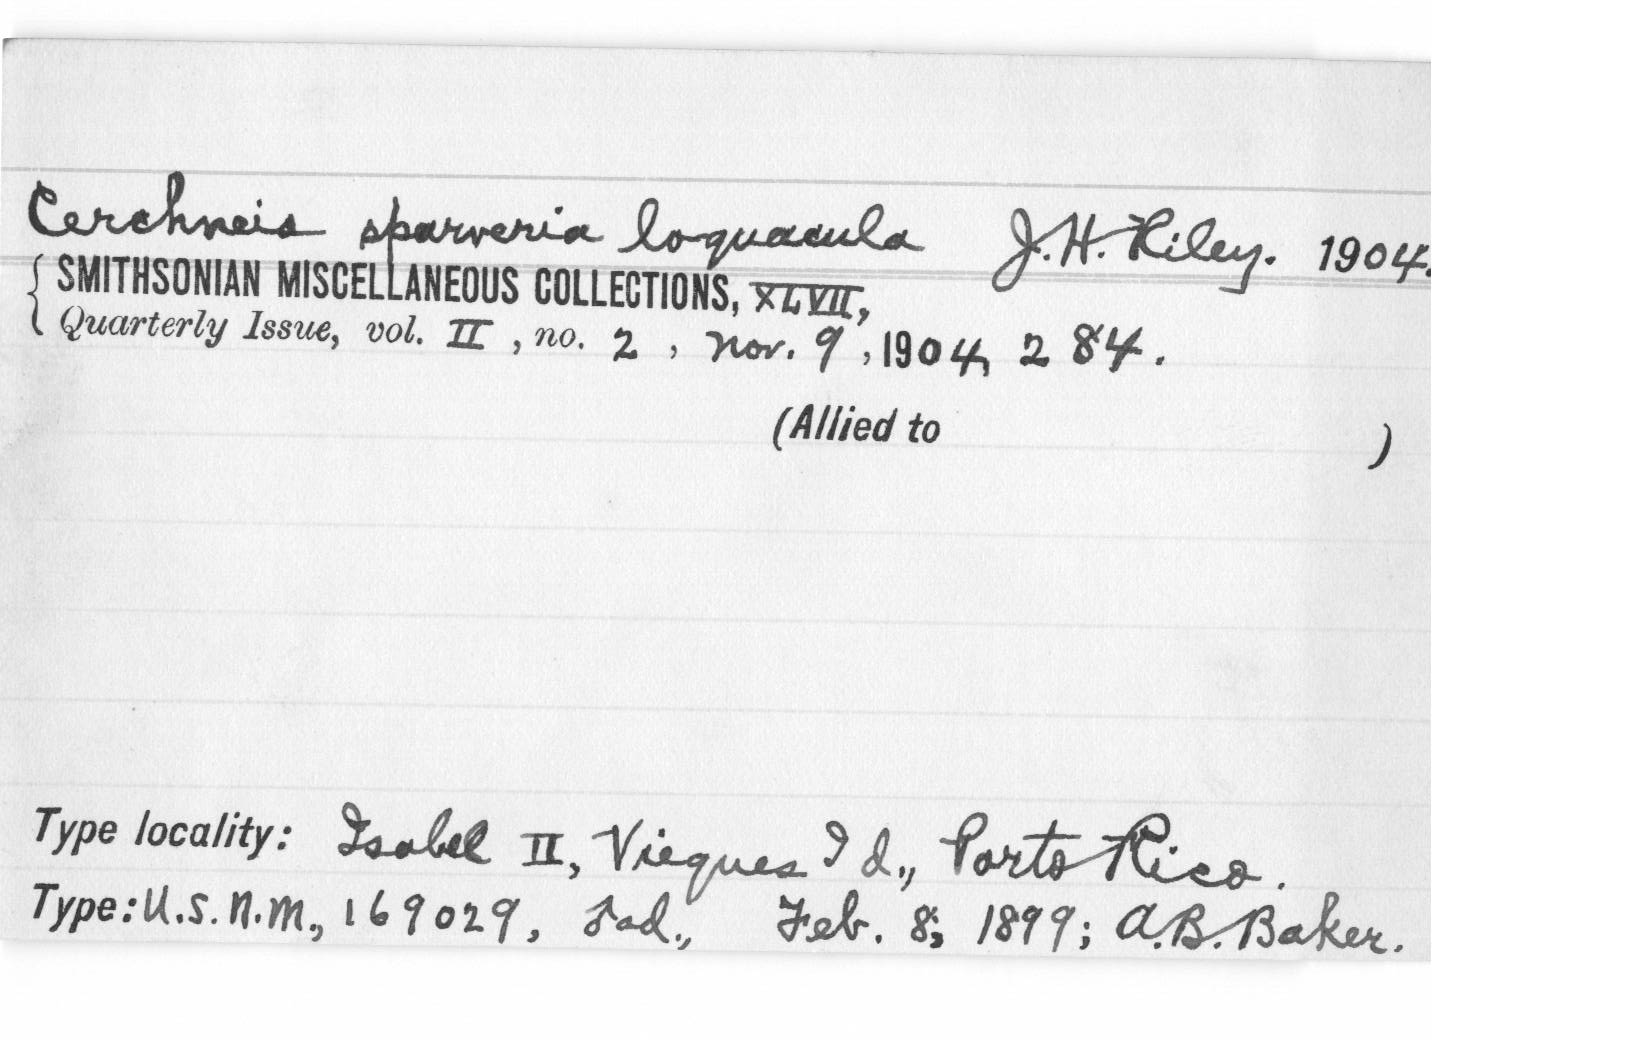 Cerchneis sparveria loquacula J.H. Riley. 1904.
{ SMITHSONIAN MISCELLANEOUS COLLECTIONS, XLVII,
Quarterly Issue, vol. II, no. 2, Nov. 9, 1904, 284.
(Allied to )
Type locality: Isabel II, Vieques Id., Porto Rico.
Type: U.S.N.M., 169029, ♂ad., Feb. 8, 1899; A.B. Baker.